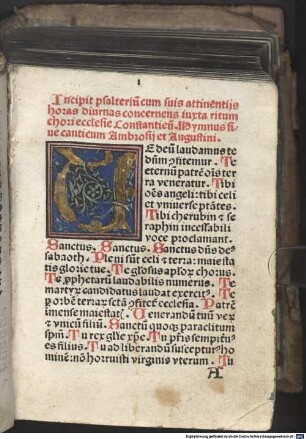 1
Incipit psalteriũ cum suis attinentijs
horas diurnas concernens iuxta ritum
chori ecclesie Constanticñ. Hymnus si
ue canticum Ambrosij et Augustini.
E deũ laudamus te
dñm ꝯfitemur. Te
eternũ patrẽ oĩs ter
ra veneratur. Tibi
oẽs angeli: tibi celi
et vniuerse ptãtes.
Tibi cherubin et se
raphin incessabili
voce proclamant.
Sanctus. Sanctus. Sanctus dñs de⁹
sabaoth. Pleni sũt celi & terra: maiesta
tis glorie tue. Te glosus aplor chorus.
Te ꝓphetarũ laudabilis numerus. Te
martyꝝ candidatus laudat exercit⁹. Te
ꝑ orbẽ terraꝝ sctã ꝯfitet ecclesia. Patrẽ
imense maiestat. Uenerandũ tuũ verũ
& vnicũ filiũ. Sanctũ quoqꝫ paraclitum
spm̃. Tu rex glie xp̃e. Tu pris sempitn⁹
es filius. Tu ad liberandũ suscepturꝰ ho
minẽ: nõ horruisti virginis vterum. Tu